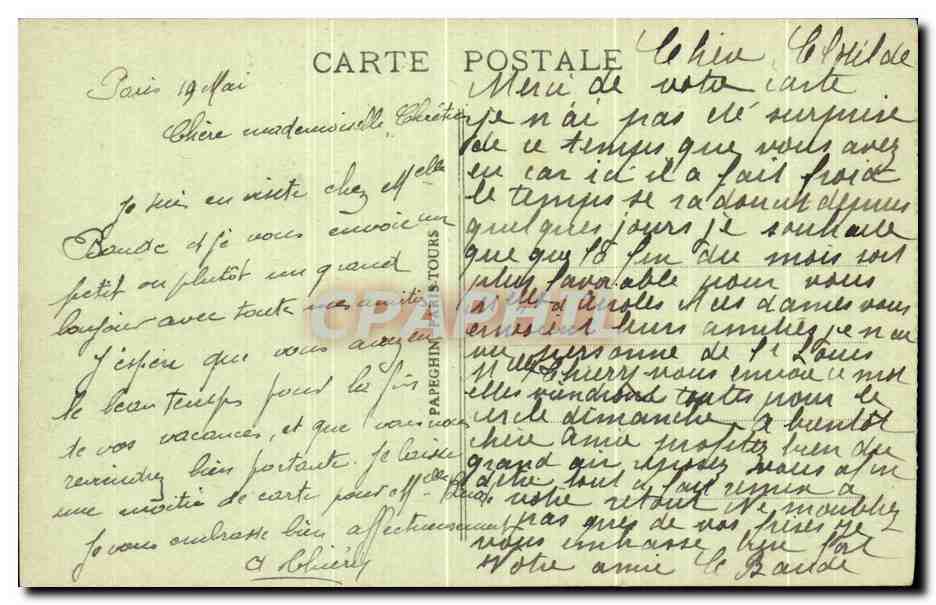 CARTE POSTALE
Paris 19 Mai
Chère mademoiselle Chrétien
Je suis en visite chez Melle
Baude et je vous envoie un
petit ou plutôt un grand
bonjour avec toute mes amitiés
J'espère que vous avez eu
le beau temps pour la fin
de vos vacances, et que vous nous
reviendrez bien portante. Je laisse
une moitié de carte pour Melle Baude
Je vous embrasse bien affectueusement
A Thiéry
PAPEGHIN PARIS-TOURS
CPAPHIL
Chère Clotilde
Merci de votre carte
je n'ai pas été surprise
de ce temps que vous avez
eu car ici il a fait froid
le temps se radoucit depuis
quelques jours je souhaite
que que la fin du mois soit
plus favorable pour vous
Melles d'Anoles Mesdames vous
envoient leurs amitiés je n'ai
vu personne de St Louis
Melle Thierry vous envoie ce mot
elles viendront toutes pour le
cercle dimanche A bientôt
chère Amie profitez bien du
grand air reposez vous afin
d'être tout à fait remise à
votre retour Ne m'oubliez
pas près de vos frères je
vous embrasse bien fort
Votre amie C Baude